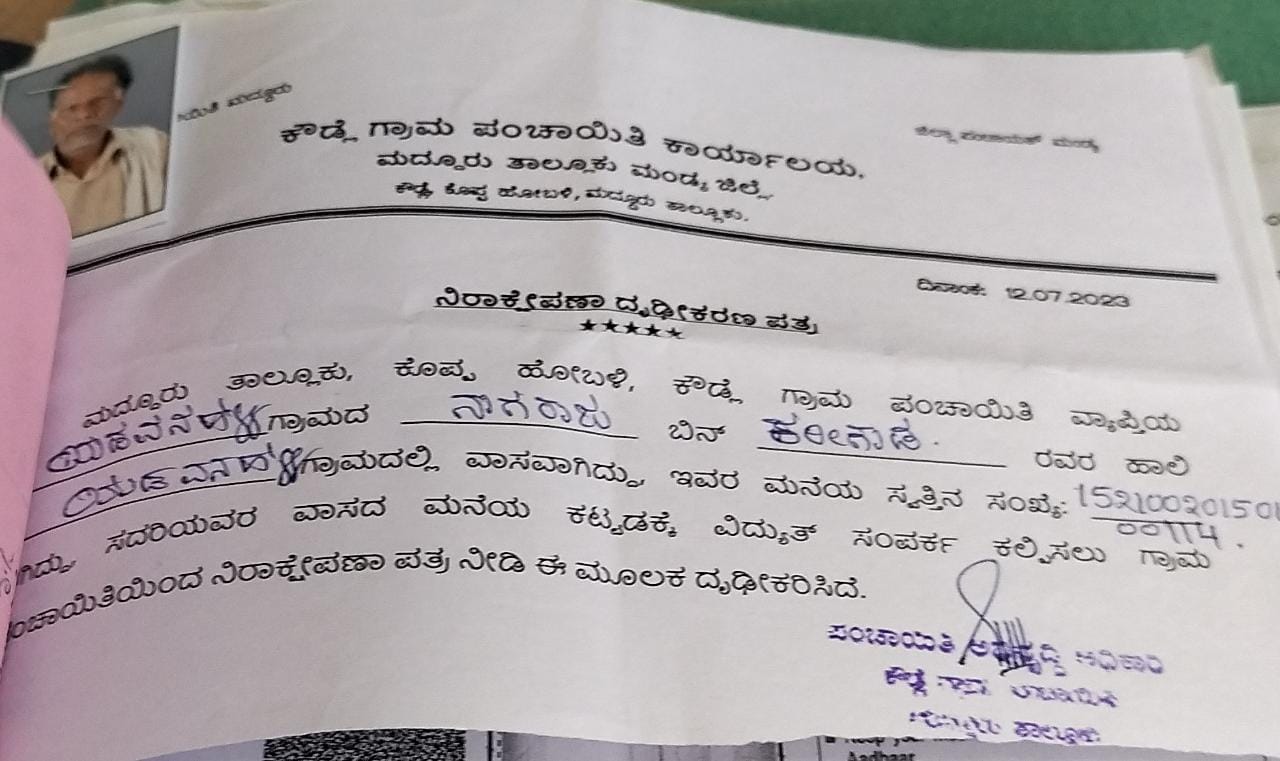 ಯಿತಿ ಮದ್ದೂರು
ಜಿಲ್ಲಾ ಪಂಚಾಯತ್ ಮಂಡ್ಯ
ಕೌಡ್ಲೆ ಗ್ರಾಮ ಪಂಚಾಯಿತಿ ಕಾರ್ಯಾಲಯ.
ಮದ್ದೂರು ತಾಲ್ಲೂಕು ಮಂಡ್ಯ ಜಿಲ್ಲೆ
ಕೌಡ್ಲೆ, ಕೊಪ್ಪ ಹೋಬಳಿ, ಮದ್ದೂರು ತಾಲ್ಲೂಕು.
ದಿನಾಂಕ: 12.07.2023
ನಿರಾಕ್ಷೇಪಣಾ ದೃಢೀಕರಣ ಪತ್ರ
★★★★★
ಮದ್ದೂರು ತಾಲ್ಲೂಕು, ಕೊಪ್ಪ ಹೋಬಳಿ, ಕೌಡ್ಲೆ ಗ್ರಾಮ ಪಂಚಾಯಿತಿ ವ್ಯಾಪ್ತಿಯ
ಗ್ರಾಮದ ನಾಗರಾಜು ಬಿನ್ ರವರ ಹಾಲಿ
ಗ್ರಾಮದಲ್ಲಿ ವಾಸವಾಗಿದ್ದು, ಇವರ ಮನೆಯ ಸ್ವತ್ತಿನ ಸಂಖ್ಯೆ: 152100201501
00114.
ಗಿದ್ದು, ಸದರಿಯವರ ವಾಸದ ಮನೆಯ ಕಟ್ಟಡಕ್ಕೆ ವಿದ್ಯುತ್ ಸಂಪರ್ಕ ಕಲ್ಪಿಸಲು ಗ್ರಾಮ
ಂಚಾಯಿತಿಯಿಂದ ನಿರಾಕ್ಷೇಪಣಾ ಪತ್ರ ನೀಡಿ ಈ ಮೂಲಕ ದೃಢೀಕರಿಸಿದೆ.
ಪಂಚಾಯಿತಿ ಅಭಿವೃದ್ಧಿ ಅಧಿಕಾರಿ
ಕೌಡ್ಲೆ ಗ್ರಾಮ ಪಂಚಾಯಿತಿ
ಮದ್ದೂರು ತಾಲ್ಲೂಕು
Aadhaar